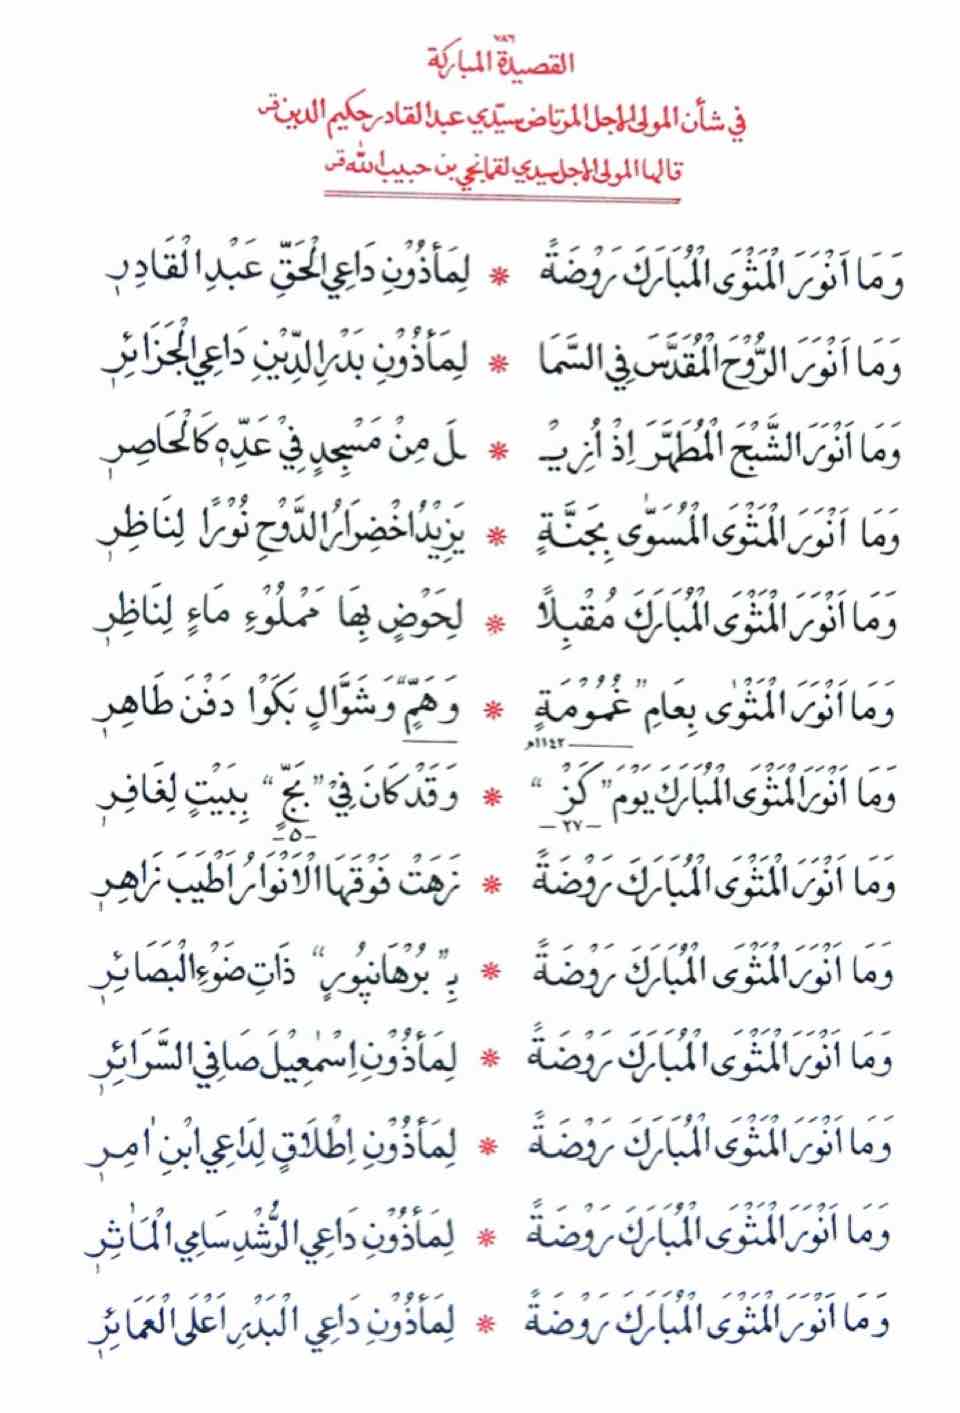 ٧٨٦
القصيدة المباركة
في شأن المولى الاجل المرتاض سيّدي عبد القادر حكيم الدين قس
قالها المولى الاجل سيدي لقمانجي بن حبيب الله قس
وَمَا اَنْوَرَ الْمَثْوَى الْمُبَارَكَ رَوْضَةً * لِمَأْذُوْنِ دَاعِي الْحَقِّ عَبْدِ الْقَادِرِ
وَمَا اَنْوَرَ الرُّوْحَ الْمُقَدَّسَ فِي السَّمَا * لِمَأْذُوْنِ بَدْرِ الدِّيْنِ دَاعِي الْجَزَائِرِ
وَمَا اَنْوَرَ الشَّبْحَ الْمُطَهَّرَ اِذْ اُنْزِيـْ * ـلَ مِنْ مَسْجِدٍ فِيْ عَدِّهِ كَالْحَاصِرِ
وَمَا اَنْوَرَ الْمَثْوَى الْمُسَوّٰى بِجَنَّةٍ * يَزِيْدُ اخْضِرَارُ الدَّوْحِ نُوْرًا لِنَاظِرِ
وَمَا اَنْوَرَ الْمَثْوَى الْمُبَارَكَ مُقْبِلًا * لِحَوْضٍ بِهَا مَمْلُوْءِ مَاءٍ لِنَاظِرِ
وَمَا اَنْوَرَ الْمَثْوٰى بِعَامِ "غُمُوْمَةٍ * وَهَمٍّ" وَشَوَّالٍ بَكَوْا دَفْنَ طَاهِرِ
١١٤٢م
وَمَا اَنْوَرَ الْمَثْوَى الْمُبَارَكَ يَوْمَ "كَزْ" * وَقَدْ كَانَ فِيْ "بَجٍّ" بِبَيْتٍ لِغَافِرِ
-٢٧- -٥-
وَمَا اَنْوَرَ الْمَثْوَى الْمُبَارَكَ رَوْضَةً * زَهَتْ فَوْقَهَا الْاَنْوَارُ اَطْيَبَ زَاهِرِ
وَمَا اَنْوَرَ الْمَثْوَى الْمُبَارَكَ رَوْضَةً * بِـ"بُرْهَانپُورٍ" ذَاتِ ضَوْءِ الْبَصَائِرِ
وَمَا اَنْوَرَ الْمَثْوَى الْمُبَارَكَ رَوْضَةً * لِمَأْذُوْنِ اِسْمٰعِيْلَ صَافِي السَّرَائِرِ
وَمَا اَنْوَرَ الْمَثْوَى الْمُبَارَكَ رَوْضَةً * لِمَأْذُوْنِ اِطْلَاقٍ لِدَاعِي ابْنِ اٰمِرِ
وَمَا اَنْوَرَ الْمَثْوَى الْمُبَارَكَ رَوْضَةً * لِمَأْذُوْنِ دَاعِي الرُّشْدِ سَامِي الْمَاٰثِرِ
وَمَا اَنْوَرَ الْمَثْوَى الْمُبَارَكَ رَوْضَةً * لِمَأْذُوْنِ دَاعِي الْبَدْرِ اَعْلَى الْعَمَائِرِ